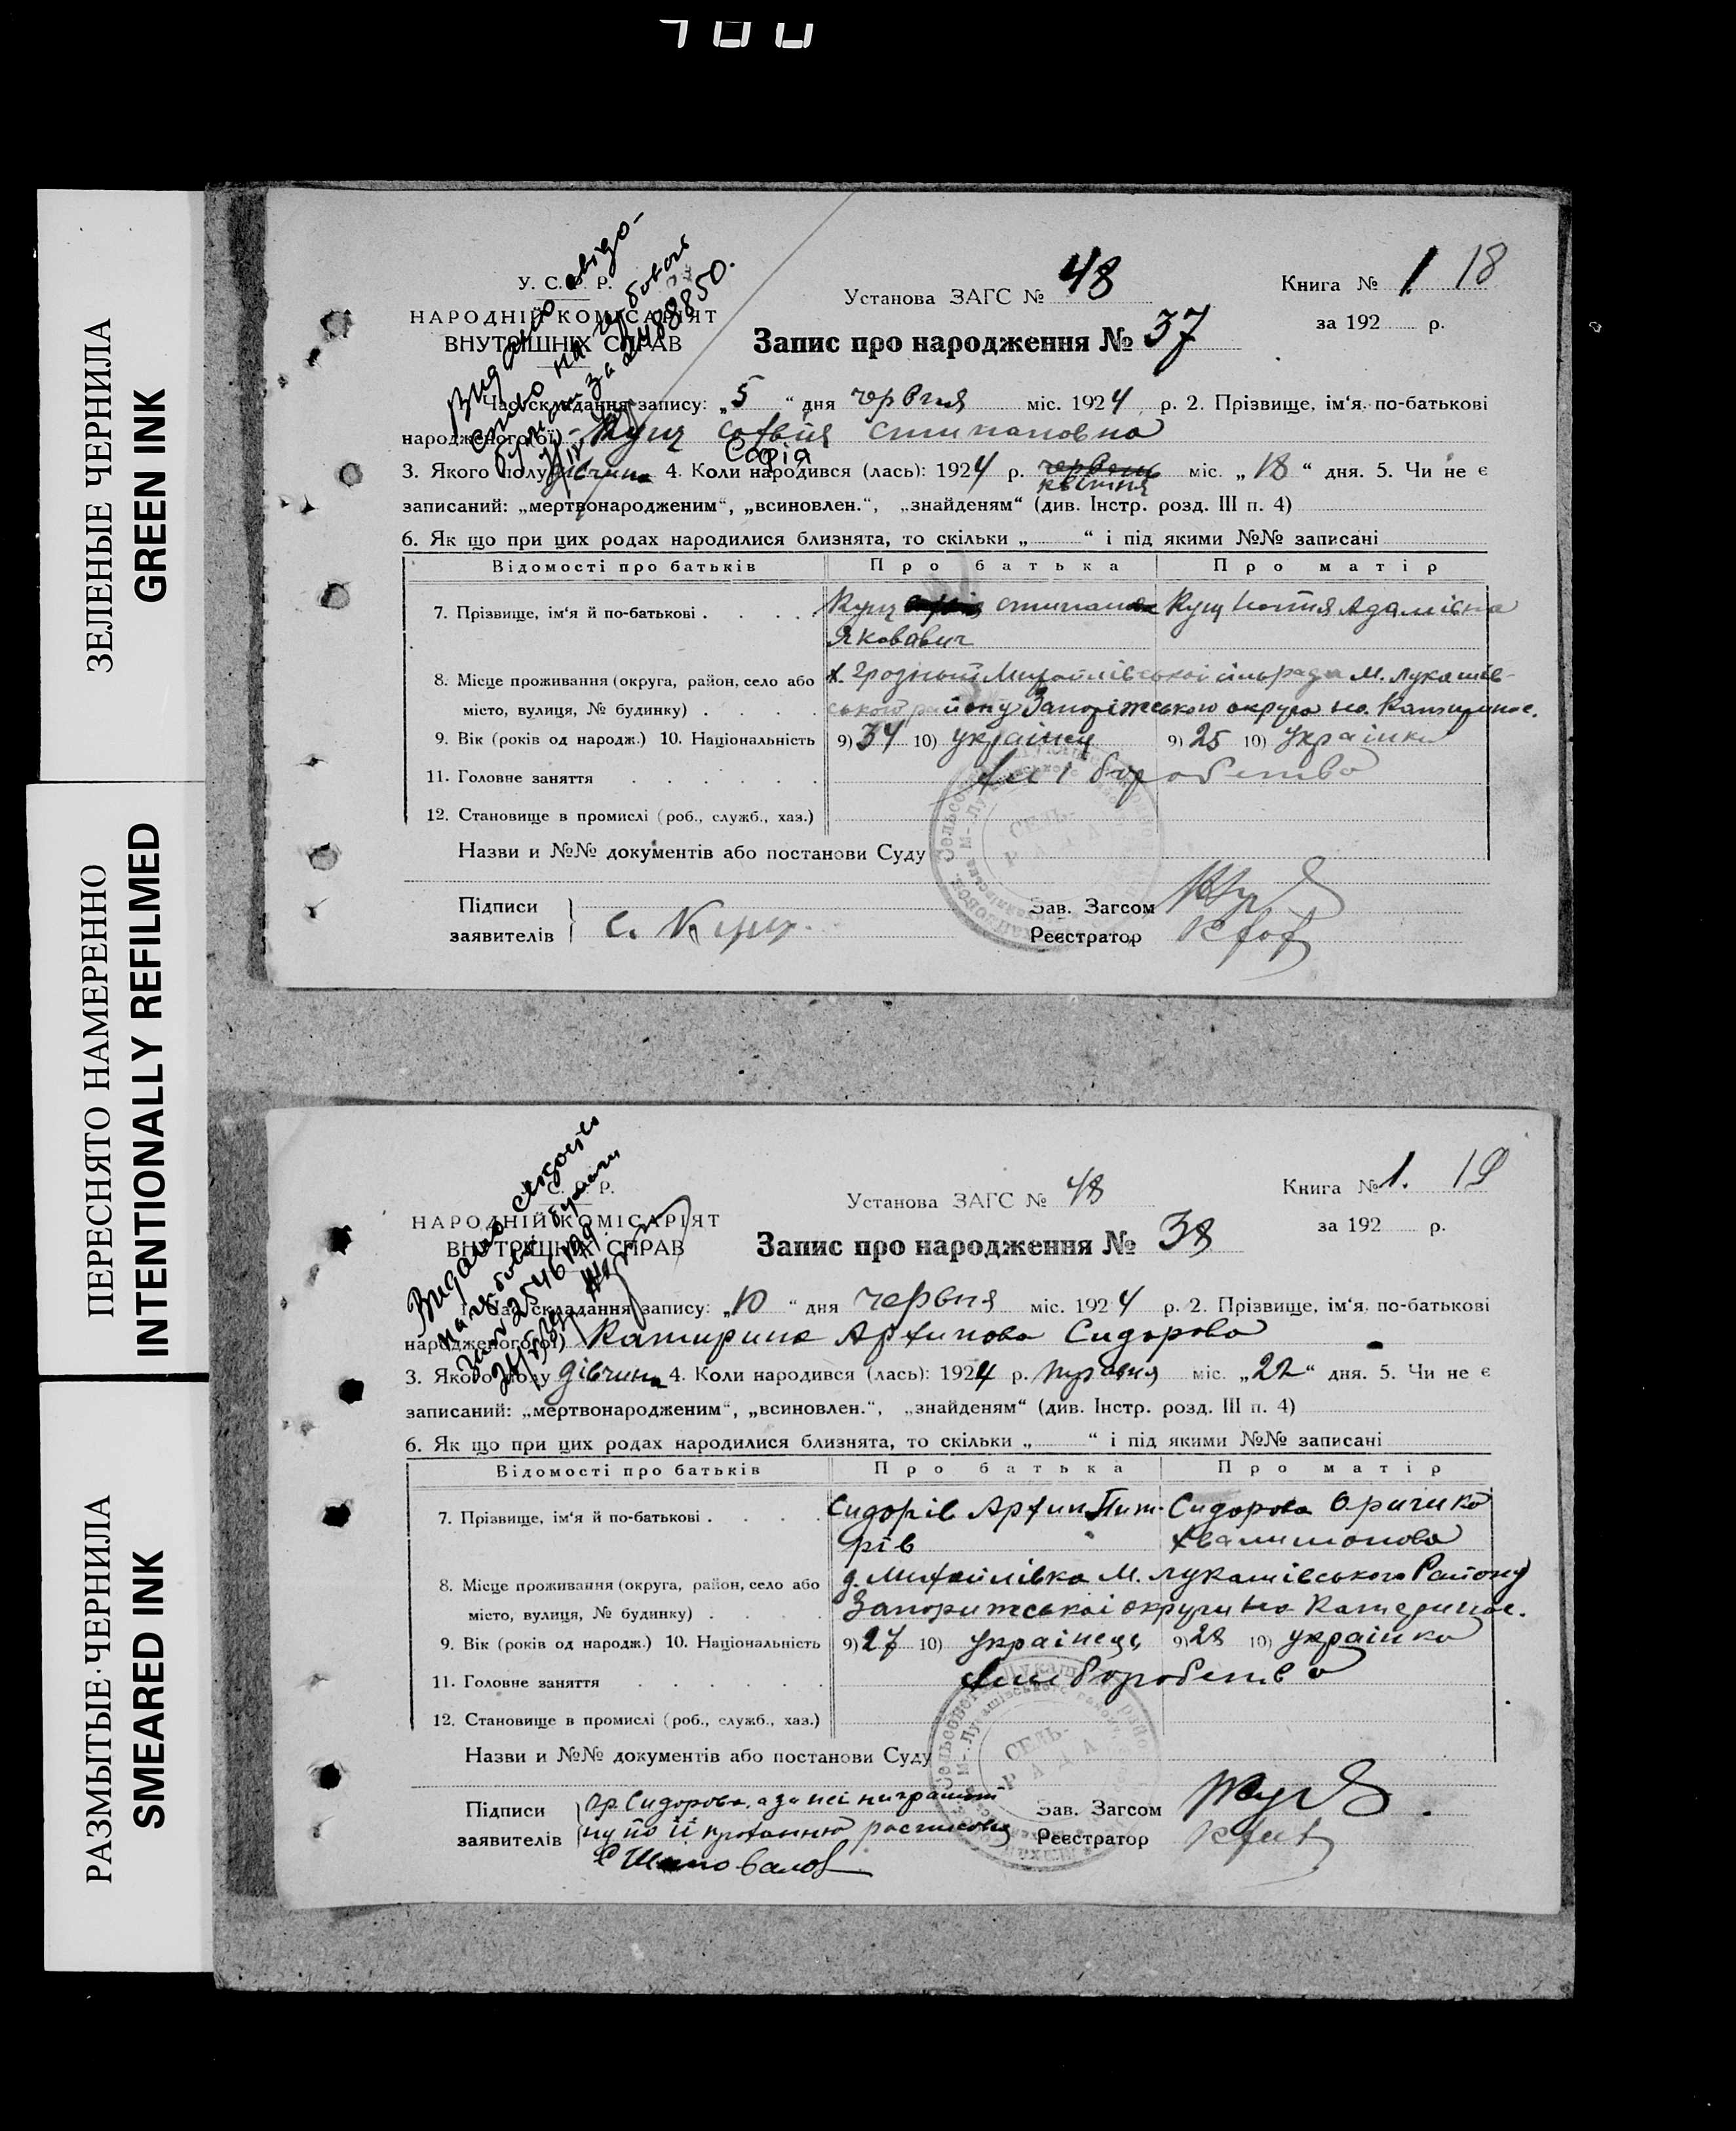 400
ЗЕЛЕНЫЕ ЧЕРНИЛА
GREEN INK
ПЕРЕСНЯТО НАМЕРЕННО
INTENTIONALLY REFILMED
РАЗМЫТЫЕ ЧЕРНИЛА
SMEARED INK
Видано свідо-
У. С. Р. Р.
НАРОДНІЙ КОМІСАРІЯТ
ВНУТРІШНІХ СПРАВ
Установа ЗАГС № 48
Книга № 1 18
за 192 р.
Запис про народження № 37
Час складання запису: „5“ дня червня міс. 1924 р. 2. Прізвище, ім'я, по-батькові
народженого(ої) Кущ Софія Стипановна
Софія
3. Якого полу дівчина 4. Коли народився (лась): 1924 р. червень міс. „18“ дня. 5. Чи не є
квітня
записаний: „мертвонародженим“, „всиновлен.“, „знайденям“ (див. Інстр. розд. III п. 4)
6. Як що при цих родах народилися близнята, то скільки „ “ і під якими №№ записані
Відомості про батьків Про батька Про матір
7. Прізвище, ім'я й по-батькові . . . . Кущ Стипан Кущ Адамівна
Яковавич
8. Місце проживання (округа, район, село або х. Грозний Михайлівськоі сільради М. Лукашів-
місто, вулиця, № будинку) . . . . ського району Запоріжського округа на Катиринос.
9. Вік (років од народж.) 10. Національність 9) 34 10) українец 9) 25 10) Українка
11. Головне заняття . . . . . . Хліборобство
12. Становище в промислі (роб., служб., хаз.)
Назви и №№ документів або постанови Суду
Підписи Зав. Загсом
заявителів С. Кущ Реєстратор
Видано
С. Р.
НАРОДНІЙ КОМІСАРІЯТ
ВНУТРІШНІХ СПРАВ
Установа ЗАГС № 48
Книга № 1. 19
за 192 р.
Запис про народження № 38
Час складання запису: „10“ дня червня міс. 1924 р. 2. Прізвище, ім'я, по-батькові
народженого(ої) Катирина Архипова Сидорова
3. Якого полу дівчина 4. Коли народився (лась): 1924 р. міс. „22“ дня. 5. Чи не є
записаний: „мертвонародженим“, „всиновлен.“, „знайденям“ (див. Інстр. розд. III п. 4)
6. Як що при цих родах народилися близнята, то скільки „ “ і під якими №№ записані
Відомості про батьків Про батька Про матір
7. Прізвище, ім'я й по-батькові . . . . Сидорів Архип Пит- Сидорова Оришка
рів Хвалимонова
8. Місце проживання (округа, район, село або д. Михайлівка М. Лукашівського Району
місто, вулиця, № будинку) . . . . Запорижськоі округи на Катеринос.
9. Вік (років од народж.) 10. Національність 9) 27 10) Українець 9) 28 10) українка
11. Головне заняття . . . . . . Хліборобство
12. Становище в промислі (роб., служб., хаз.)
Назви и №№ документів або постанови Суду
Підписи гр. Сидорова, а за неі ниграмот Зав. Загсом
заявителів ну по іі проханню росписовц Реєстратор
Шаповалов